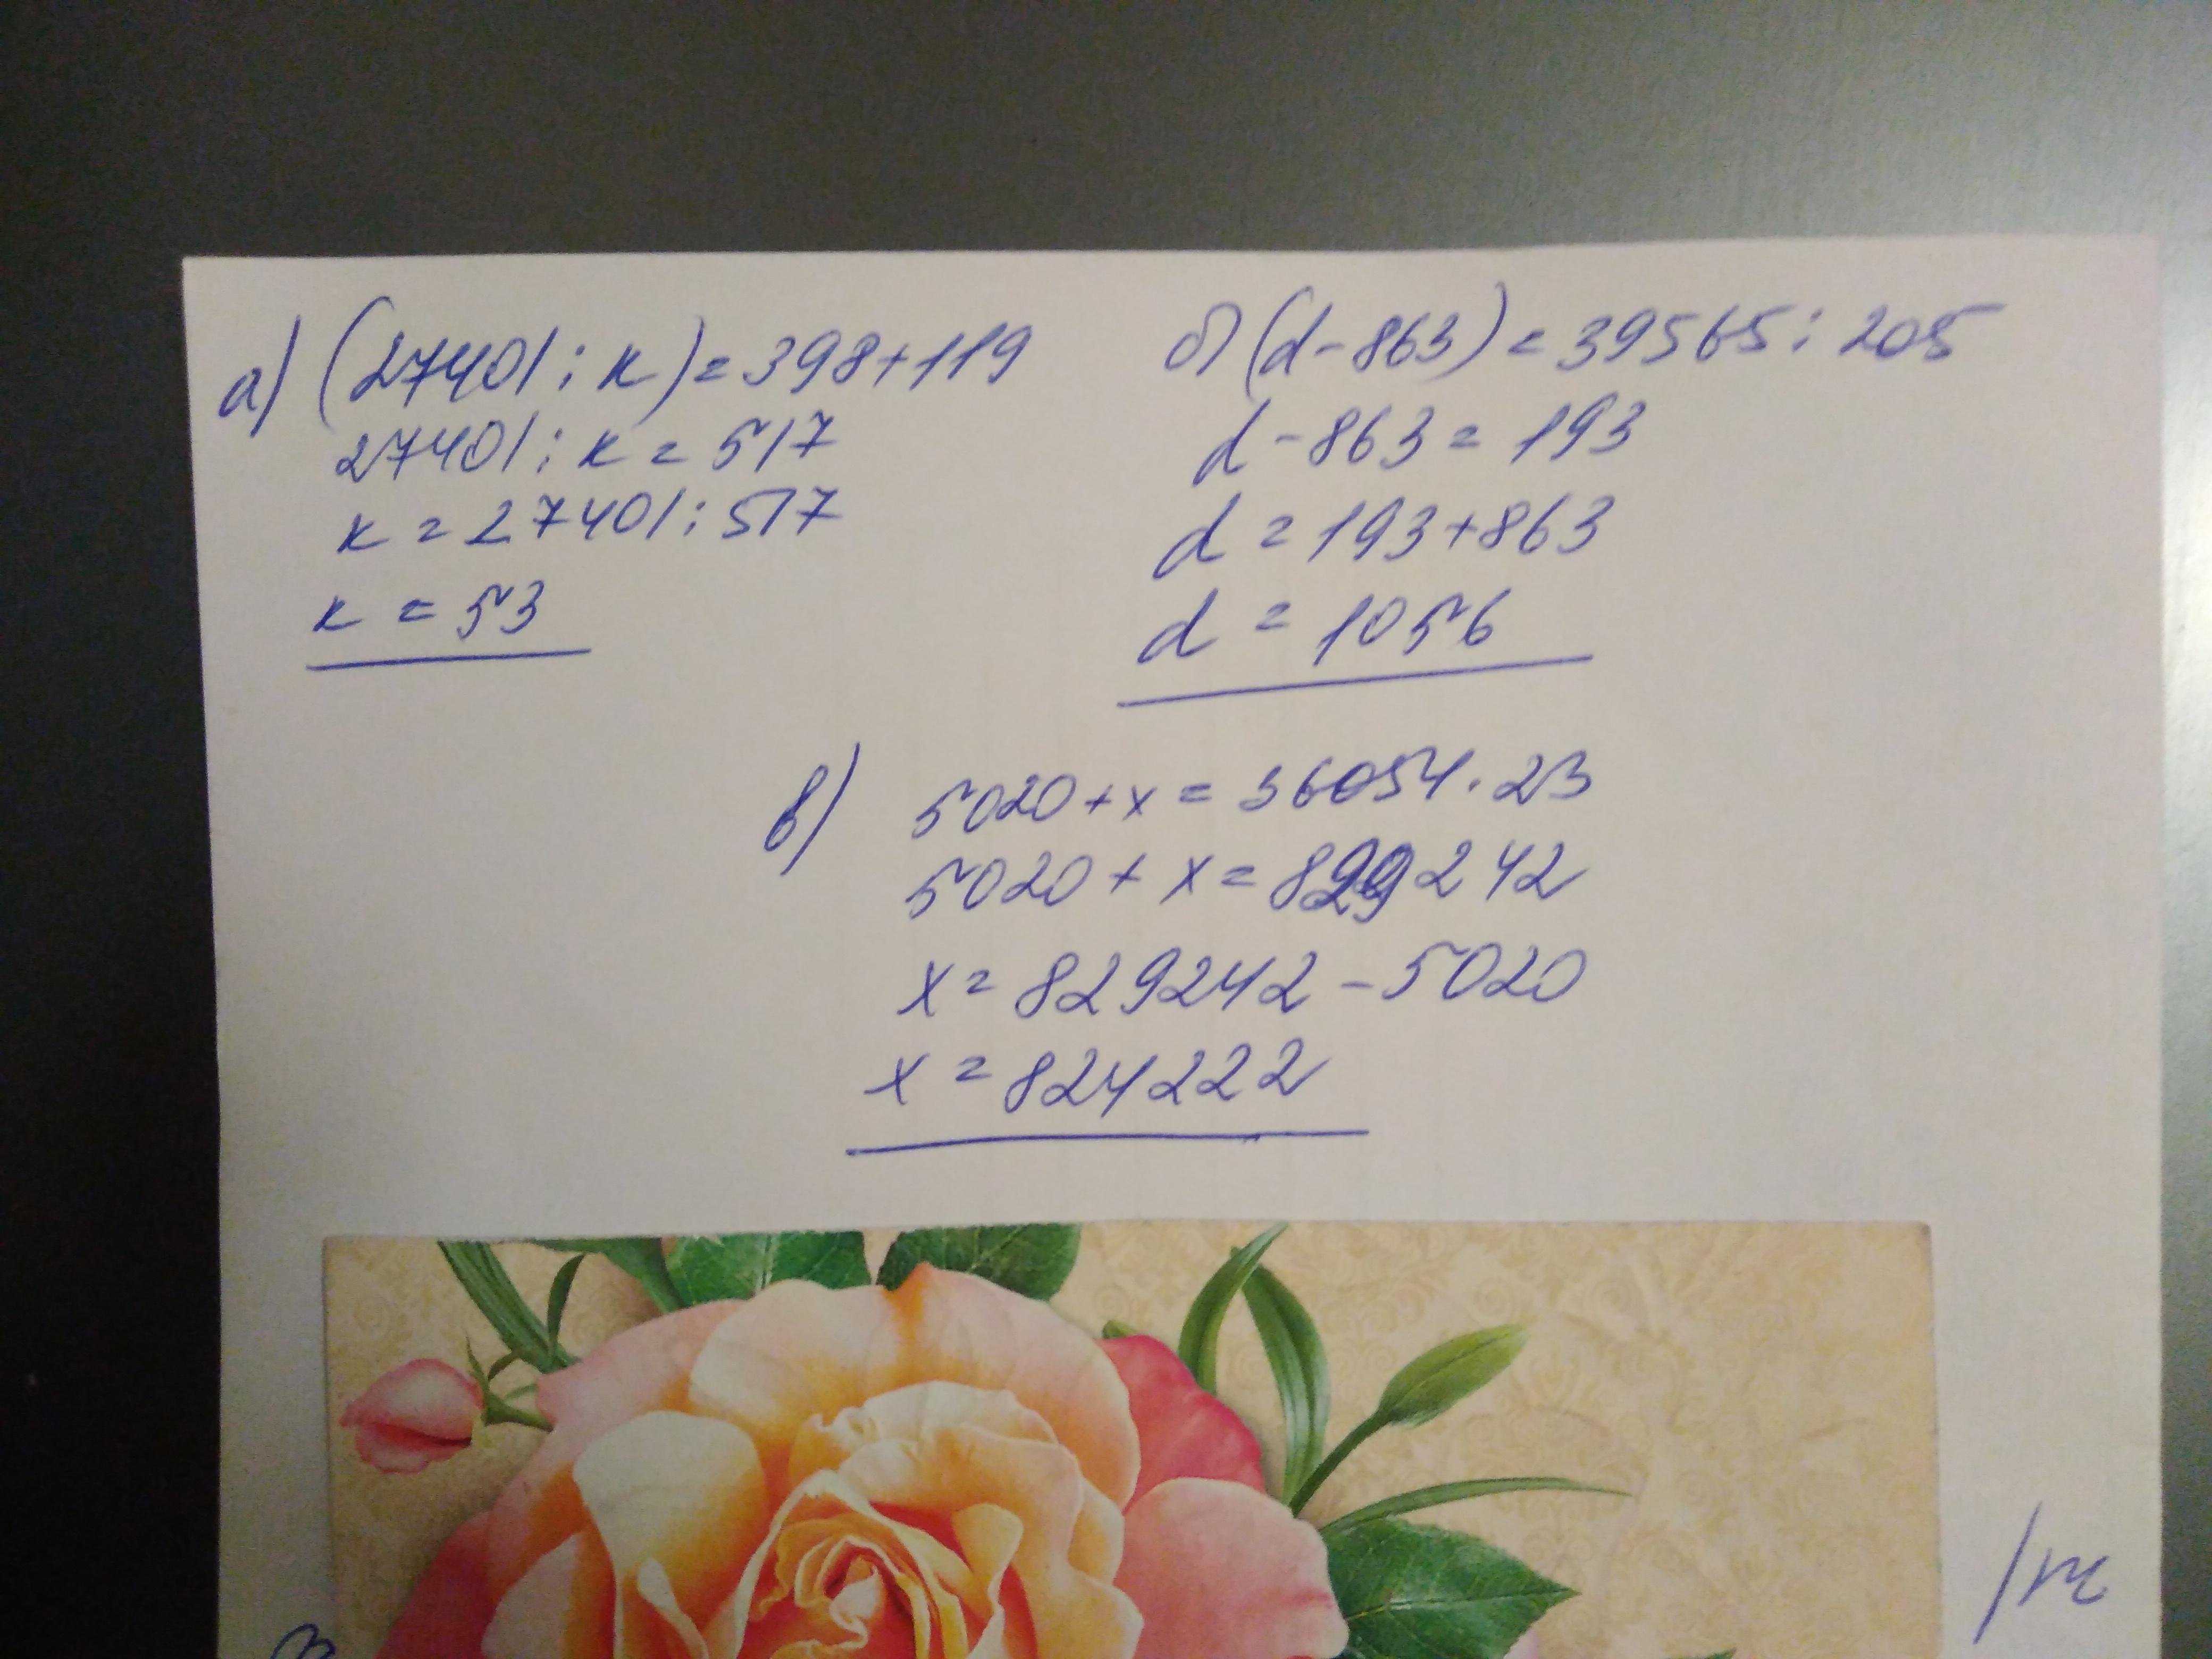 а) (27401 : к) = 398 + 119
27401 : к = 517
к = 27401 : 517
к = 53
б) (d - 863) = 39565 : 205
d - 863 = 193
d = 193 + 863
d = 1056
в) 5020 + х = 36054 · 23
5020 + х = 829242
х = 829242 - 5020
х = 824222